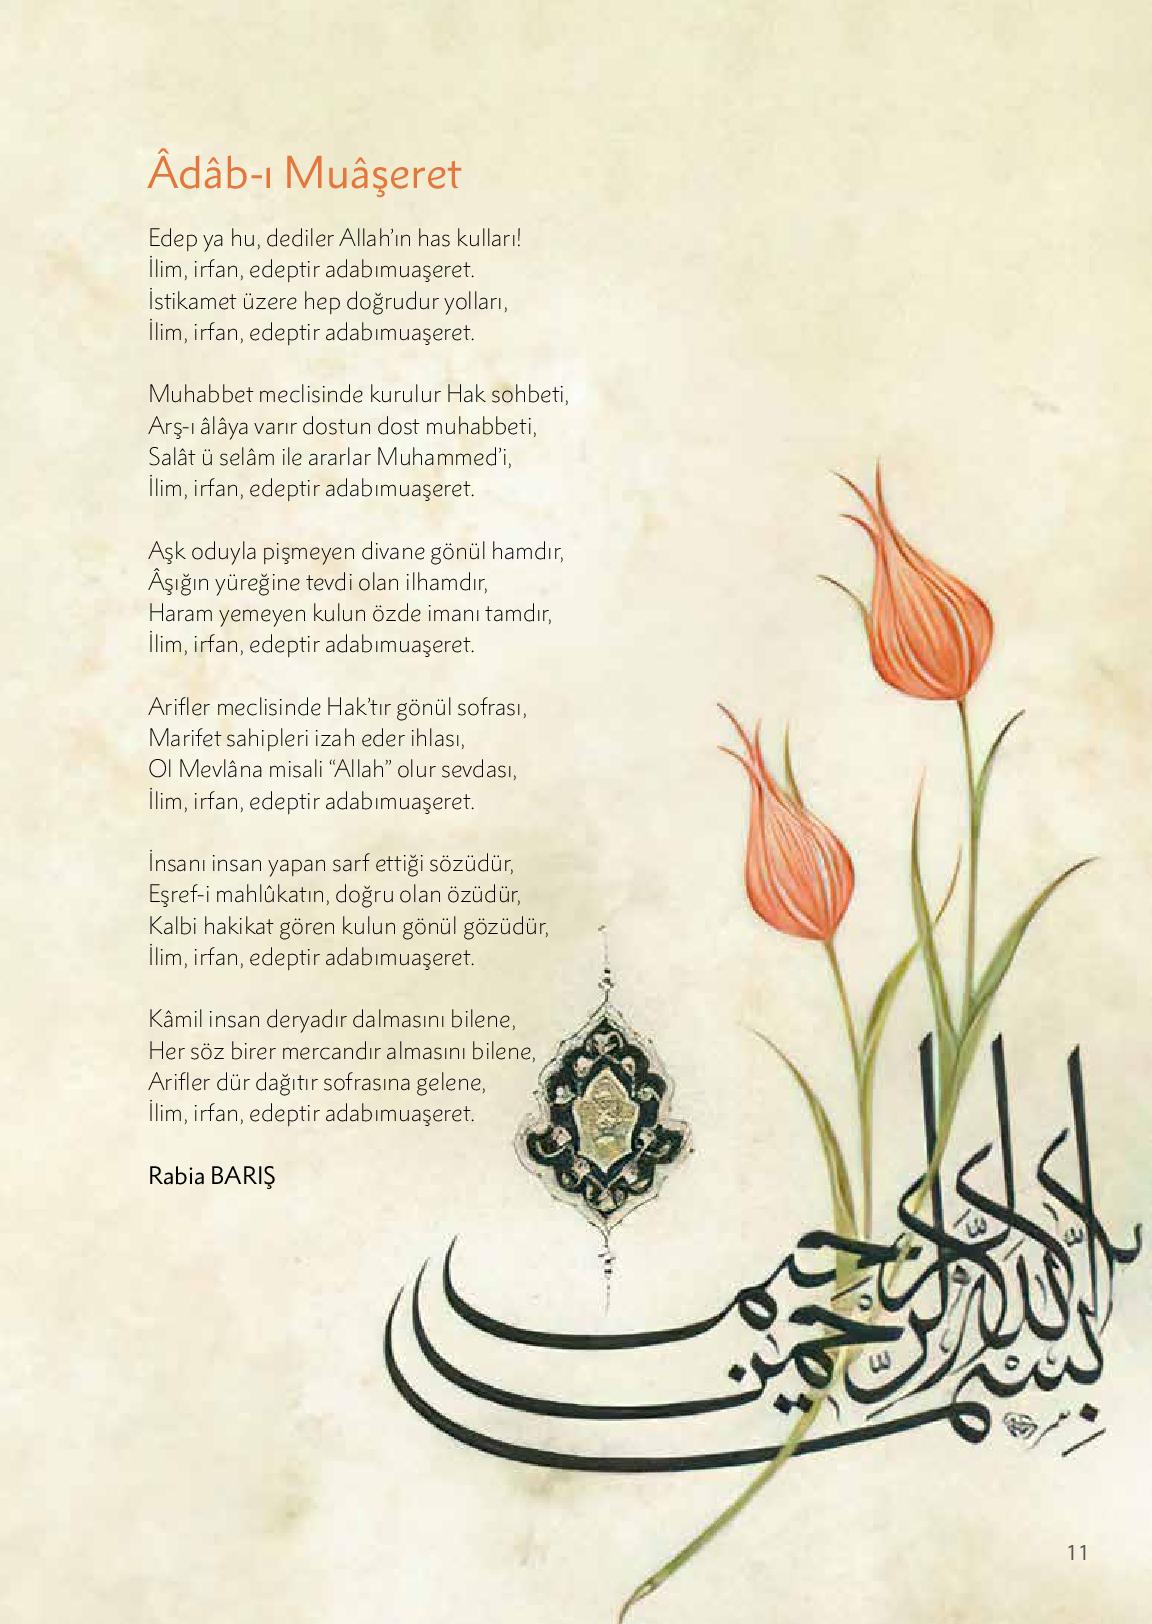 Âdâb-ı Muâşeret
Edep ya hu, dediler Allah’ın has kulları!
İlim, irfan, edeptir adabımuaşeret.
İstikamet üzere hep doğrudur yolları,
İlim, irfan, edeptir adabımuaşeret.
Muhabbet meclisinde kurulur Hak sohbeti,
Arş-ı âlâya varır dostun dost muhabbeti,
Salât ü selâm ile ararlar Muhammed’i,
İlim, irfan, edeptir adabımuaşeret.
Aşk oduyla pişmeyen divane gönül hamdır,
Âşığın yüreğine tevdi olan ilhamdır,
Haram yemeyen kulun özde imanı tamdır,
İlim, irfan, edeptir adabımuaşeret.
Arifler meclisinde Hak’tır gönül sofrası,
Marifet sahipleri izah eder ihlası,
Ol Mevlâna misali “Allah” olur sevdası,
İlim, irfan, edeptir adabımuaşeret.
İnsanı insan yapan sarf ettiği sözüdür,
Eşref-i mahlûkatın, doğru olan özüdür,
Kalbi hakikat gören kulun gönül gözüdür,
İlim, irfan, edeptir adabımuaşeret.
Kâmil insan deryadır dalmasını bilene,
Her söz birer mercandır almasını bilene,
Arifler dür dağıtır sofrasına gelene,
İlim, irfan, edeptir adabımuaşeret.
Rabia BARIŞ
بسم الله الرحمن الرحيم
11